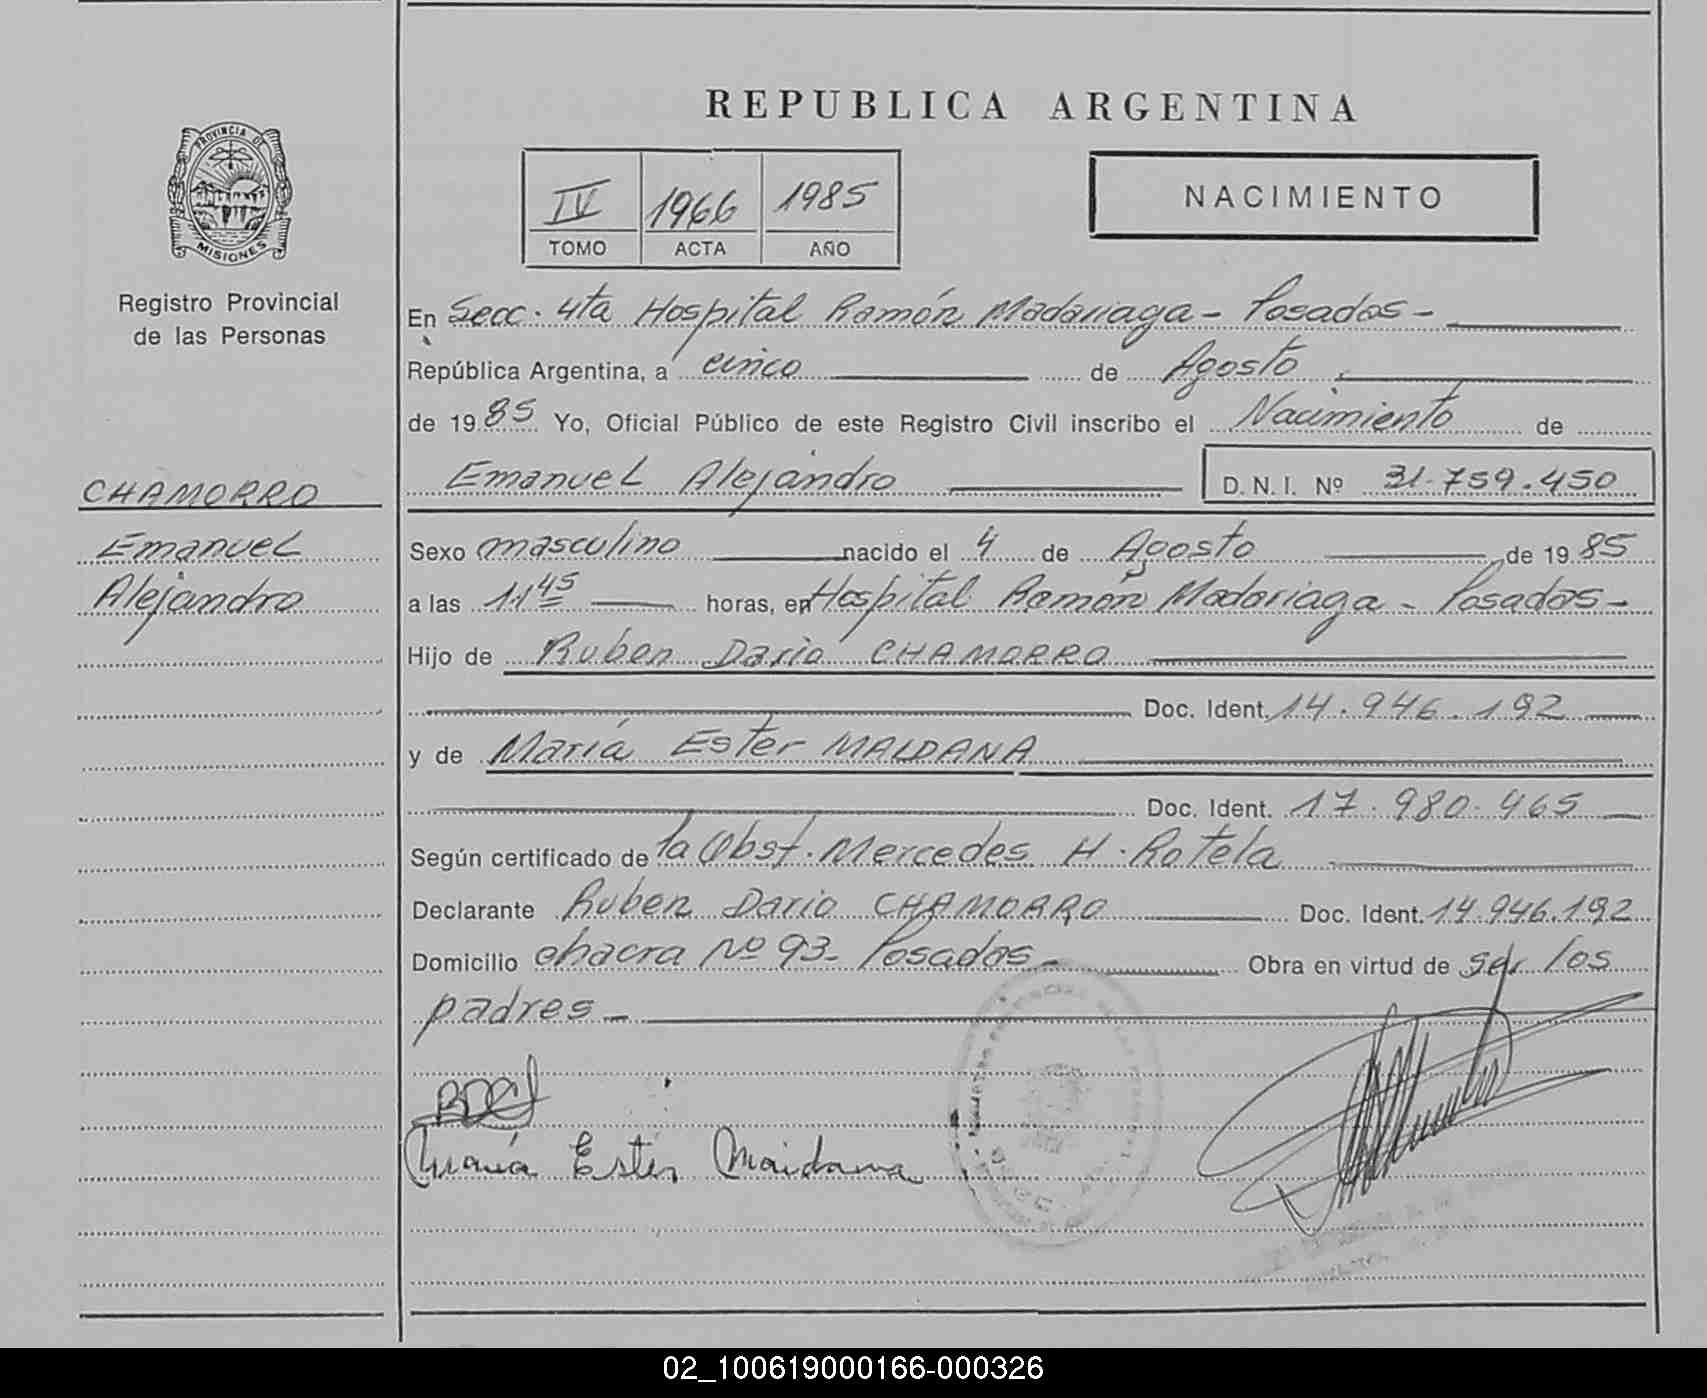 REPUBLICA ARGENTINA
PROVINCIA DE
MISIONES
Registro Provincial
de las Personas
IV 1966 1985
TOMO ACTA AÑO
NACIMIENTO
En Secc. 4ta Hospital Ramón Madariaga - Posadas -
República Argentina, a cinco de Agosto
de 1985 Yo, Oficial Público de este Registro Civil inscribo el Nacimiento de
Emanuel Alejandro D. N. I. Nº 31.759.450
CHAMORRO
Emanuel
Alejandro
Sexo masculino nacido el 4 de Agosto de 1985
a las 11 45 horas, en Hospital Ramón Madariaga - Posadas -
Hijo de Ruben Dario CHAMORRO
Doc. Ident. 14.946.192
y de María Ester MAIDANA
Doc. Ident. 17.980.465
Según certificado de la Obst. Mercedes H. Rotela
Declarante Ruben Dario CHAMORRO Doc. Ident. 14.946.192
Domicilio chacra Nº 93 - Posadas - Obra en virtud de ser los
padres -
María Ester Maidana
02_100619000166-000326